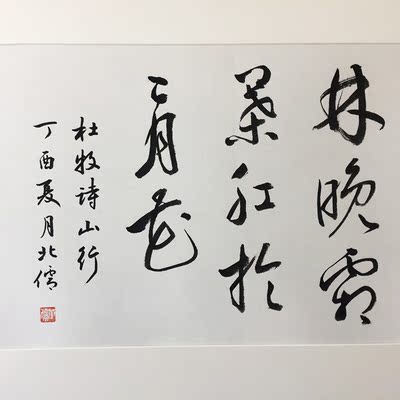 林晚霜
葉红於
二月花
杜牧诗山行
丁酉夏月北儒